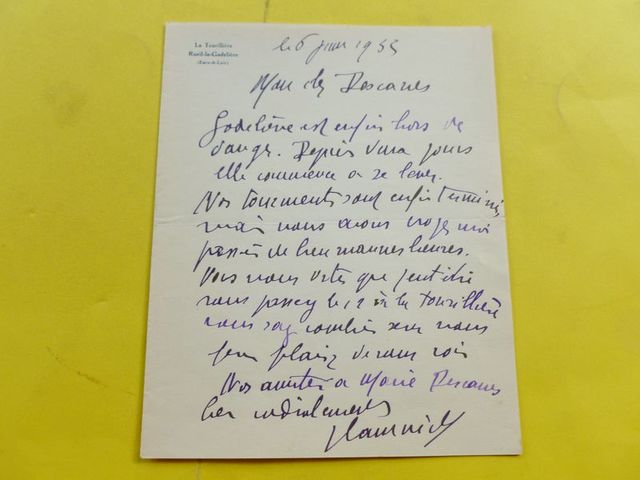 La Tourillière
Rueil-la-Gadelière
(Eure-&-Loir)
le 6 juin 1955
Mon cher Descaves
Godeliève est enfin hors de
danger. Depuis jours
elle commence a se lever.
Nos tourments sont enfin terminés
mais nous avons croyez moi
passés de bien mauvaises heures.
Vous nous dites que
vous passez le 12 à la Tourillière
vous savez combien nous
fera plaisir de vous voir
Nos amitiés a Marie Descaves
bien cordialement
Vlaminck